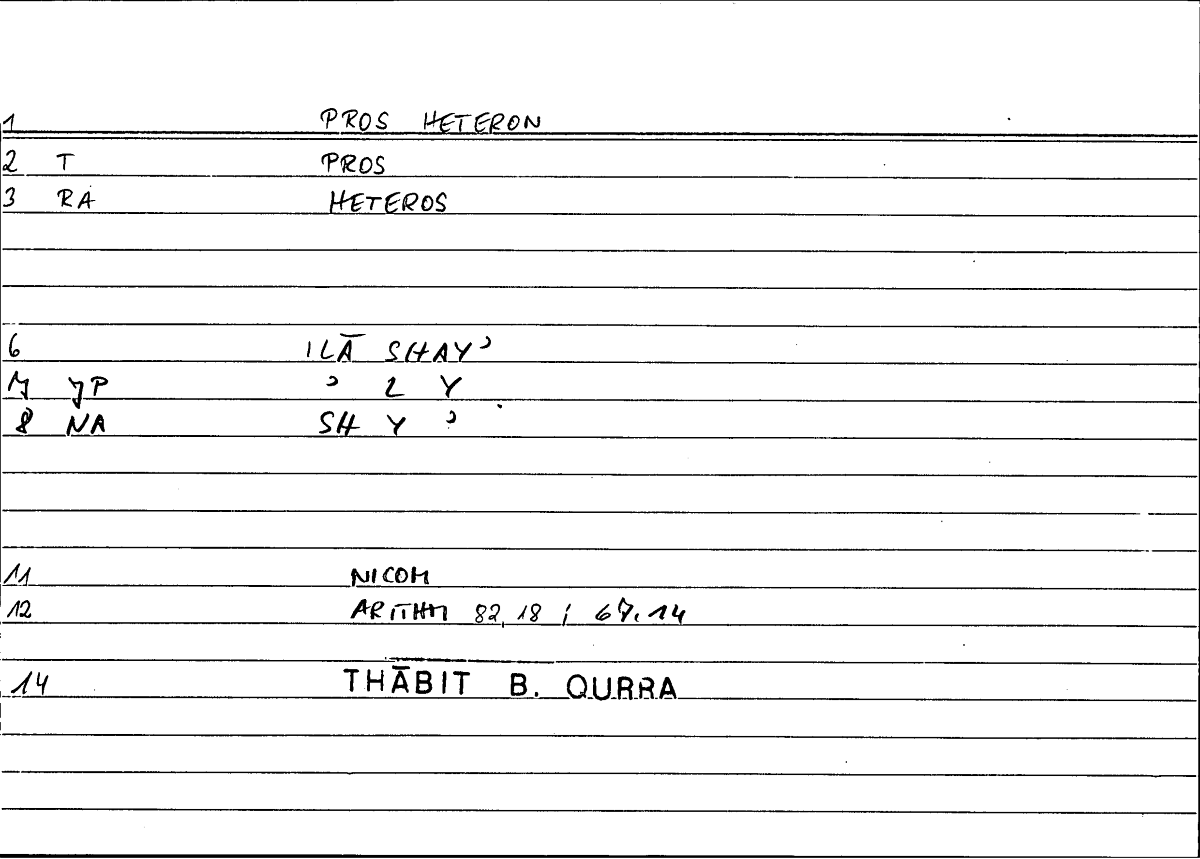 1 PROS HETERON
2 T PROS
3 RA HETEROS
6 ILĀ SHAYʾ
7 JP ʾ L Y
8 NA SH Y ʾ
11 NICOM
12 ARITHM 82,18 ; 67.14
14 THĀBIT B. QURRA